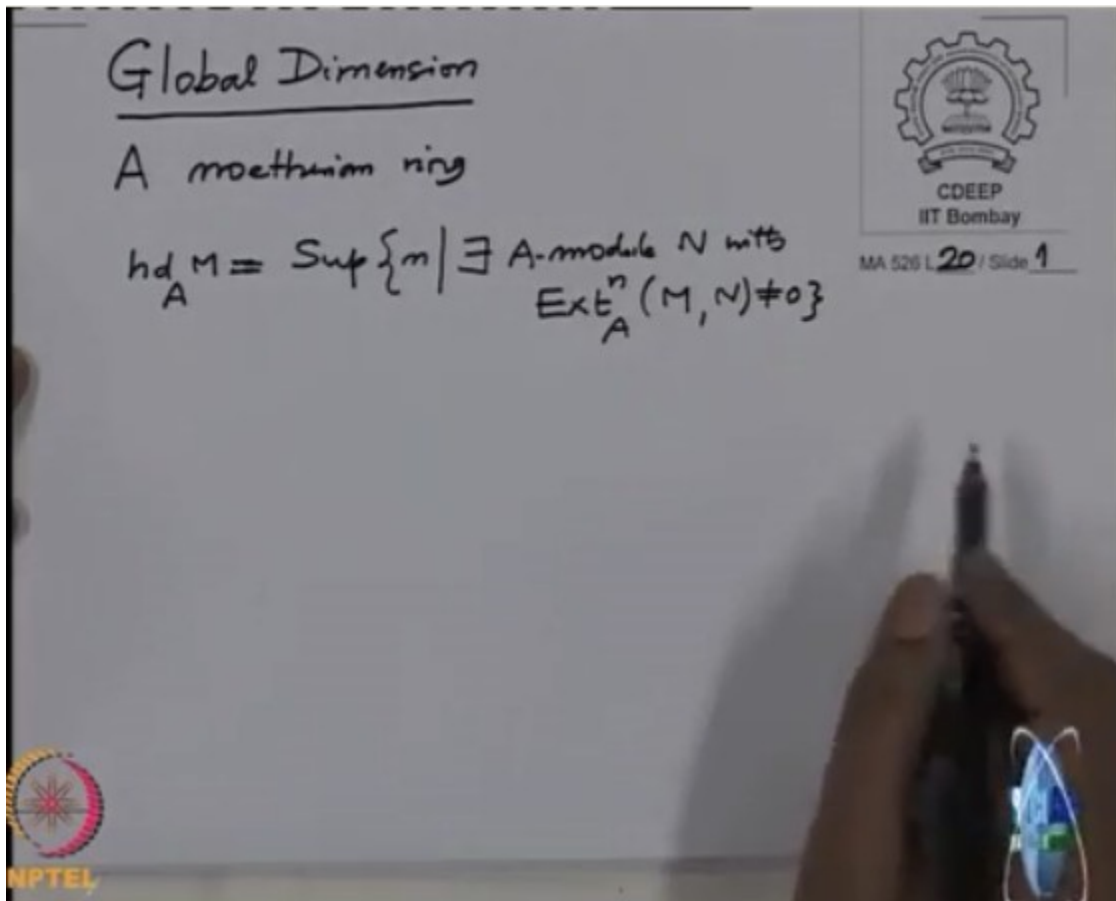 Global Dimension
A noetherian ring
hd_A M = Sup{n | ∃ A-module N with
Ext^n_A (M, N) ≠ 0}
CDEEP
IIT Bombay
MA 526 L 20 / Slide 1
NPTEL